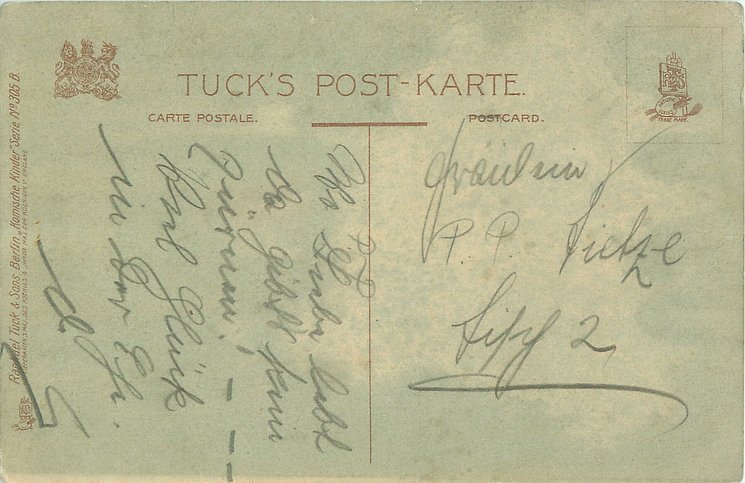 TUCK'S POST-KARTE.
CARTE POSTALE. POSTCARD.
TRADE MARK.
Raphael Tuck & Sons Berlin „Komische Kinder" Serie No 305 B.
Wo Liebe lebt
da gibt's kein
Zürnen! - - -
Viel Glück
in der Ehe.
Fräulein
P. P. Tietze
Tisch 2